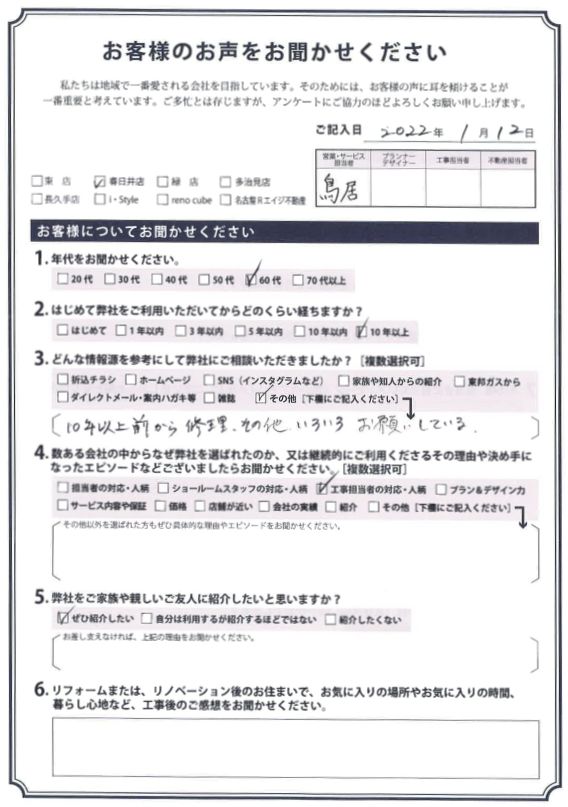 お客様のお声をお聞かせください
私たちは地域で一番愛される会社を目指しています。そのためには、お客様の声に耳を傾けることが
一番重要と考えています。ご多忙とは存じますが、アンケートにご協力のほどよろしくお願い申し上げます。
ご記入日 2022年 1月 12日
営業・サービス担当者 プランナーデザイナー 工事担当者 不動産担当者
鳥居
□東 店 ☑春日井店 □緑 店 □多治見店
□長久手店 □i・Style □reno cube □名古屋Rエイジ不動産
お客様についてお聞かせください
1. 年代をお聞かせください。
□20代 □30代 □40代 □50代 ☑60代 □70代以上
2. はじめて弊社をご利用いただいてからどのくらい経ちますか？
□はじめて □1年以内 □3年以内 □5年以内 □10年以内 ☑10年以上
3. どんな情報源を参考にして弊社にご相談いただきましたか？［複数選択可］
□折込チラシ □ホームページ □SNS（インスタグラムなど） □家族や知人からの紹介 □東邦ガスから
□ダイレクトメール・案内ハガキ等 □雑誌 ☑その他［下欄にご記入ください］
10年以上前から修理、その他 いろいろ お願いしている。
4. 数ある会社の中からなぜ弊社を選ばれたのか、又は継続的にご利用くださるその理由や決め手に
なったエピソードなどございましたらお聞かせください。［複数選択可］
□担当者の対応・人柄 □ショールームスタッフの対応・人柄 ☑工事担当者の対応・人柄 □プラン＆デザイン力
□サービス内容や保証 □価格 □店舗が近い □会社の実績 □紹介 □その他［下欄にご記入ください］
その他以外を選ばれた方もぜひ具体的な理由やエピソードをお聞かせください。
5. 弊社をご家族や親しいご友人に紹介したいと思いますか？
☑ぜひ紹介したい □自分は利用するが紹介するほどではない □紹介したくない
お差し支えなければ、上記の理由をお聞かせください。
6. リフォームまたは、リノベーション後のお住まいで、お気に入りの場所やお気に入りの時間、
暮らし心地など、工事後のご感想をお聞かせください。